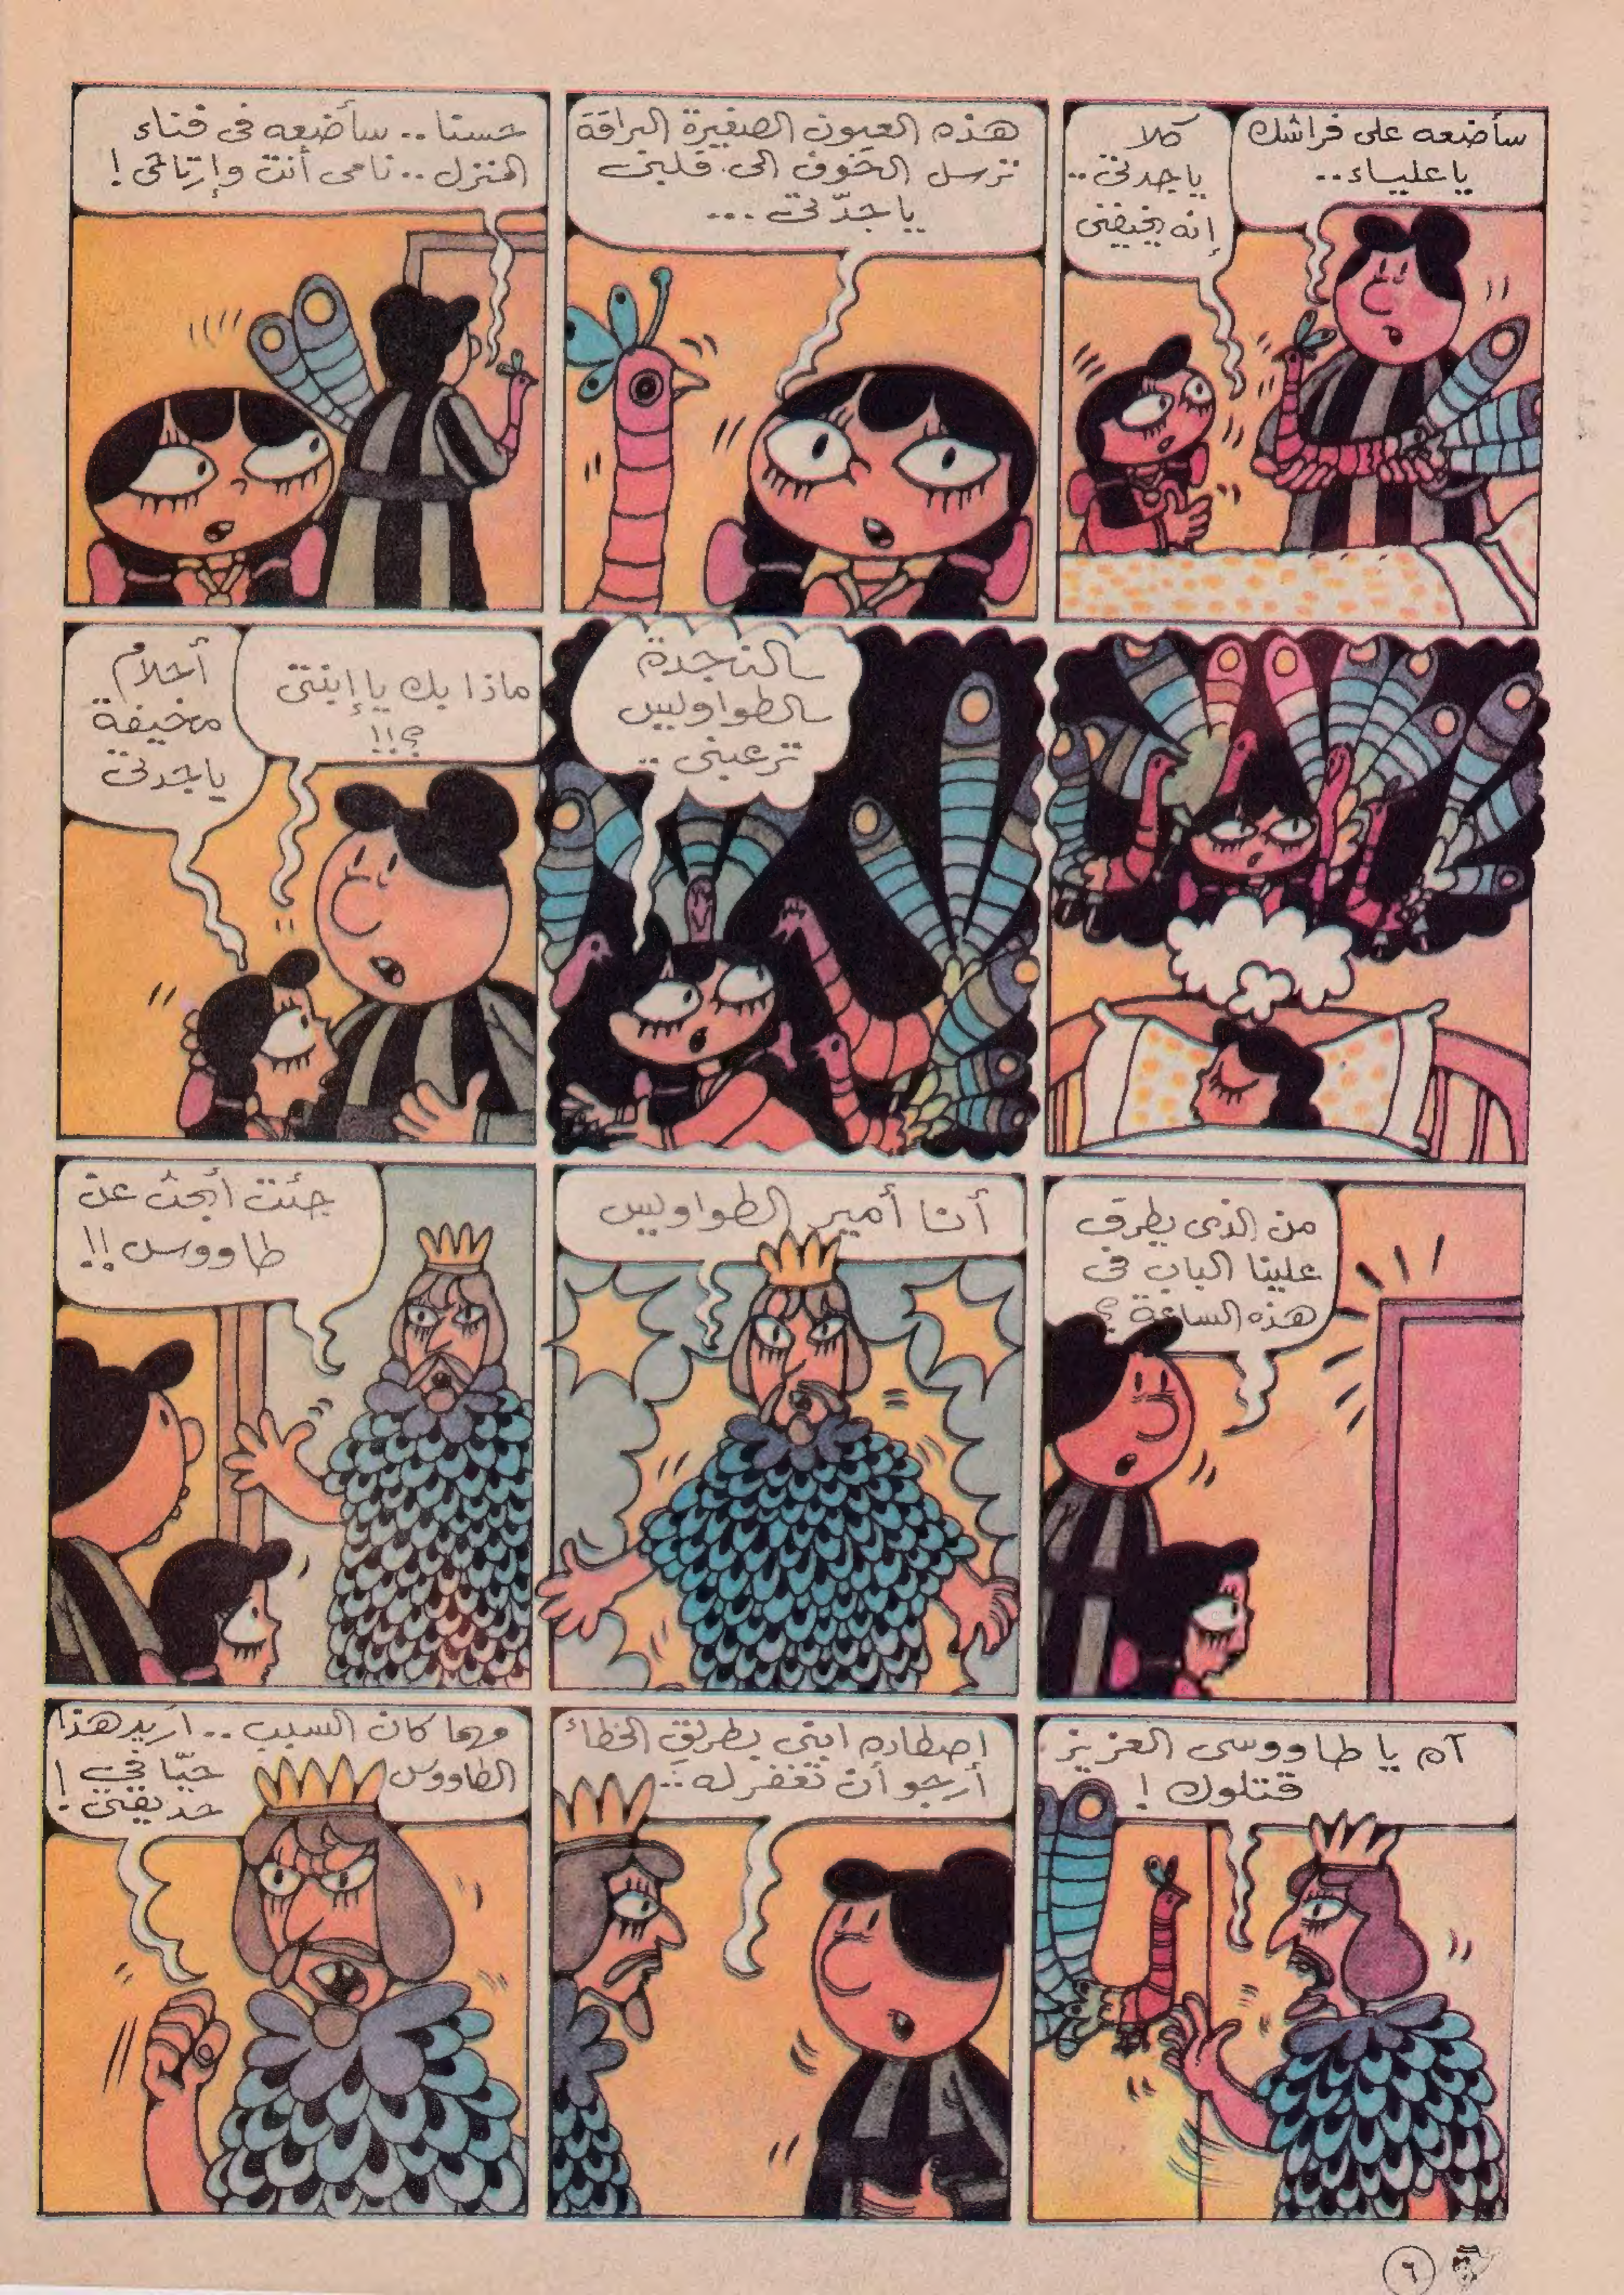 سأضعه على فراشك
ياعلياء..
كلا
ياجدتى..
إنه يخيفنى
هذه العيون الصغيرة البراقة
ترسل الخوف الى قلبى
ياجدّتى ...
حسنا.. سأضعه فى فناء
المنزل.. نامى أنت وإرتاحى!
النجدة
الطواويس
ترعبنى ..
ماذا بك يا إبنتى
؟!!
أحلام
مخيفة
ياجدتى
من الذى يطرق
علينا الباب فى
هذه الساعة؟
أنا أمير الطواويس
جئت أبحث عن
طاووس!!
آه يا طاووسى العزيز
قتلوك!
اصطاده ابنى بطريق الخطأ
أرجو أن تغفر له..
مهما كان السبب.. أريد هذا
الطاووس حيّا فى
حديقتى!
٦